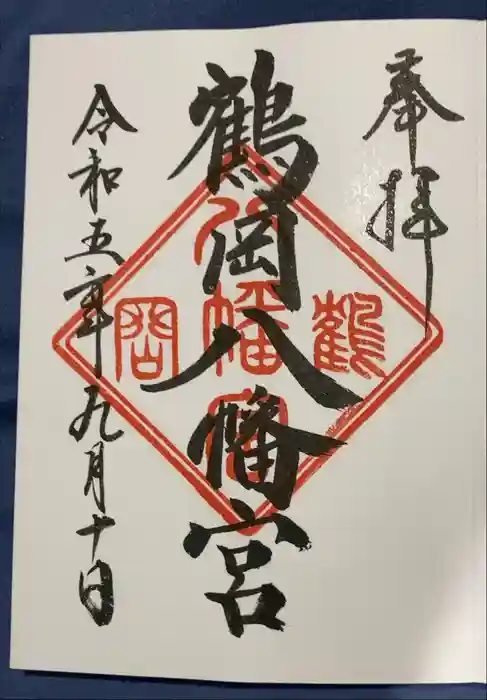 奉拝
鶴岡八幡宮
令和五年九月十日
鶴
八幡宮
岡